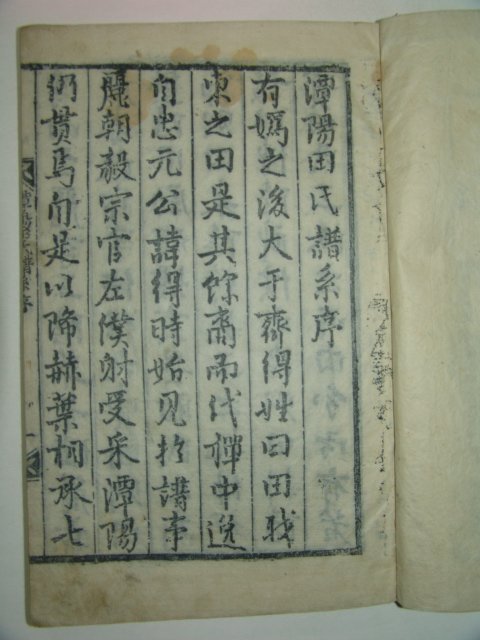 潭陽田氏譜系序
有嬀之後大于齊得姓曰田我
東之田是其餘裔而代禪中逸
自忠元公諱得時始見扵譜事
麗朝毅宗官左僕射受采潭陽
仍貫焉自是以降赫葉相承七